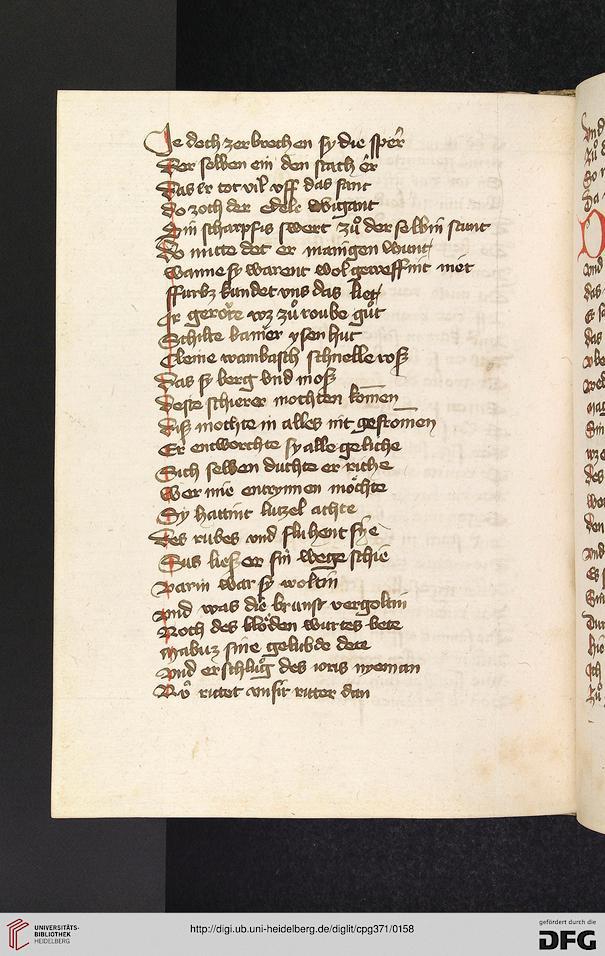 Je doch zerbrochen sy die sper
Der selben ein den stach er
Das er tot vil vff das sant
Do zoch der Edele wigant
Ein scharpfis swert zů der selbin stunt
Do mitte det er manigen wunt
Wanne sy warent wol getreffint niet
ffurbz kundet vns das liet
Ir gerote wz zů roube gůt
Schilte banier ysen hut
Cleine wambasch schnelle rosz
Das sy berg vnd mosz
Deste schierer mochten komen
Disz mochte in alles nit gefromen
Er entworchte sy alle geliche
Sich selben duchte er riche
Wer nie entrynnen möchte
Sy hattint lutzel achte
Des rubes vnd fluhent sye
Sus liesz er sin wege schie
Darin war sy woltin
Vnd was die brunst vergoltin
Noch des blöden wurtes bete
Mabuz sine gelubde dete
Vnd er schlůg des ioris nyeman
Nů ritet vnsir ritter dan
UNIVERSITÄTS-
BIBLIOTHEK
HEIDELBERG
http://digi.ub.uni-heidelberg.de/diglit/cpg371/0158
gefördert durch die
DFG